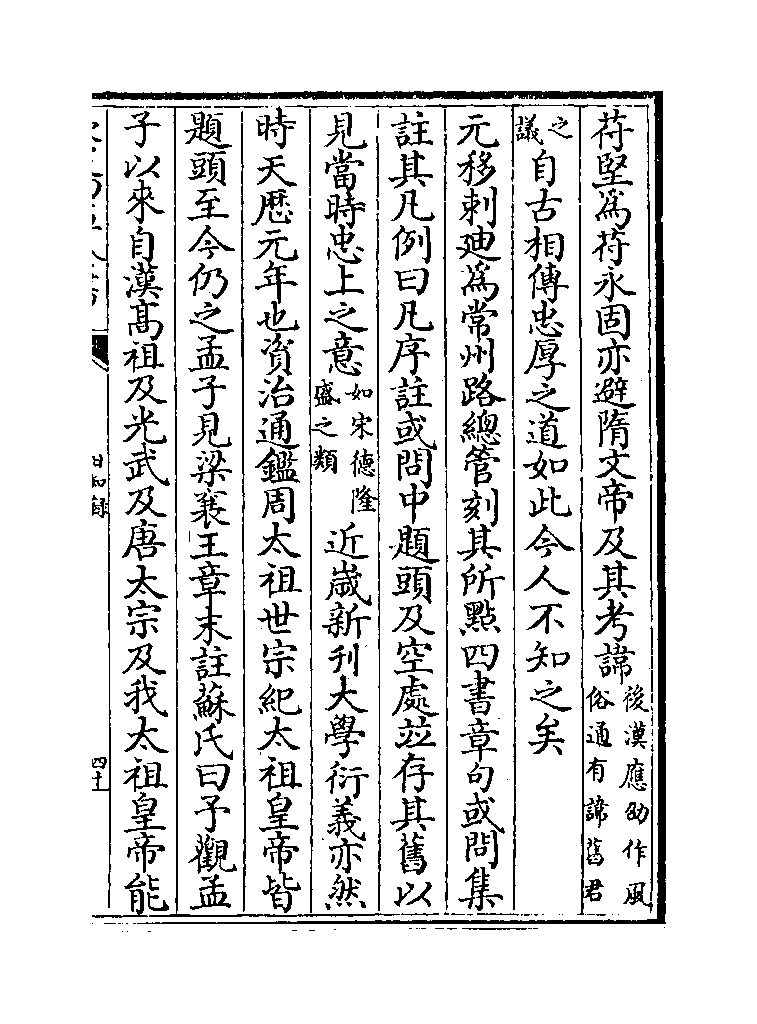 苻堅爲苻永固亦避隋文帝及其考諱後漢應劭作風俗通有諱舊君
之議自古相傳忠厚之道如此今人不知之矣
元移剌廸爲常州路總管刻其所㸃四書章句或問集
註其凡例曰凡序註或問中題頭及空處竝存其舊以
見當時忠上之意如宋德隆盛之類近嵗新刊大學衍義亦然
時天厯元年也資治通鑑周太祖世宗紀太祖皇帝皆
題頭至今仍之孟子見梁襄王章末註蘇氏曰予觀孟
子以來自漢髙祖及光武及唐太宗及我太祖皇帝能
日知錄
四十